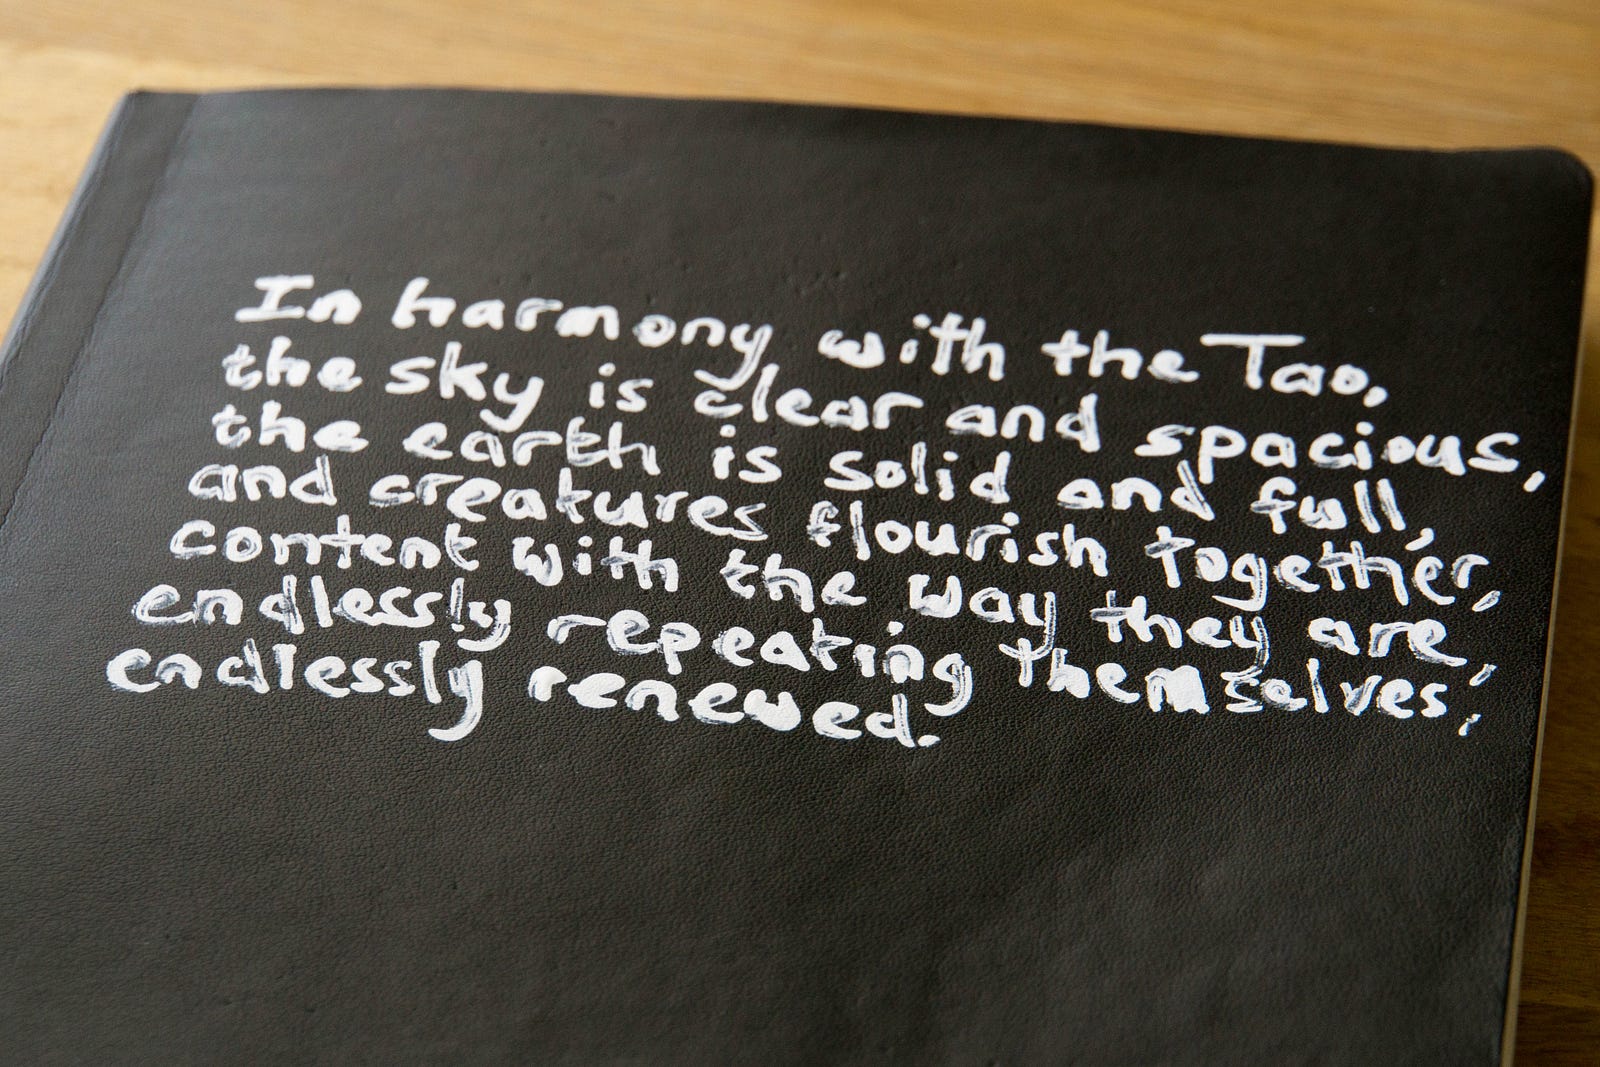 In harmony with the Tao,
the sky is clear and spacious,
the earth is solid and full,
and creatures flourish together,
content with the way they are,
endlessly repeating themselves,
endlessly renewed.